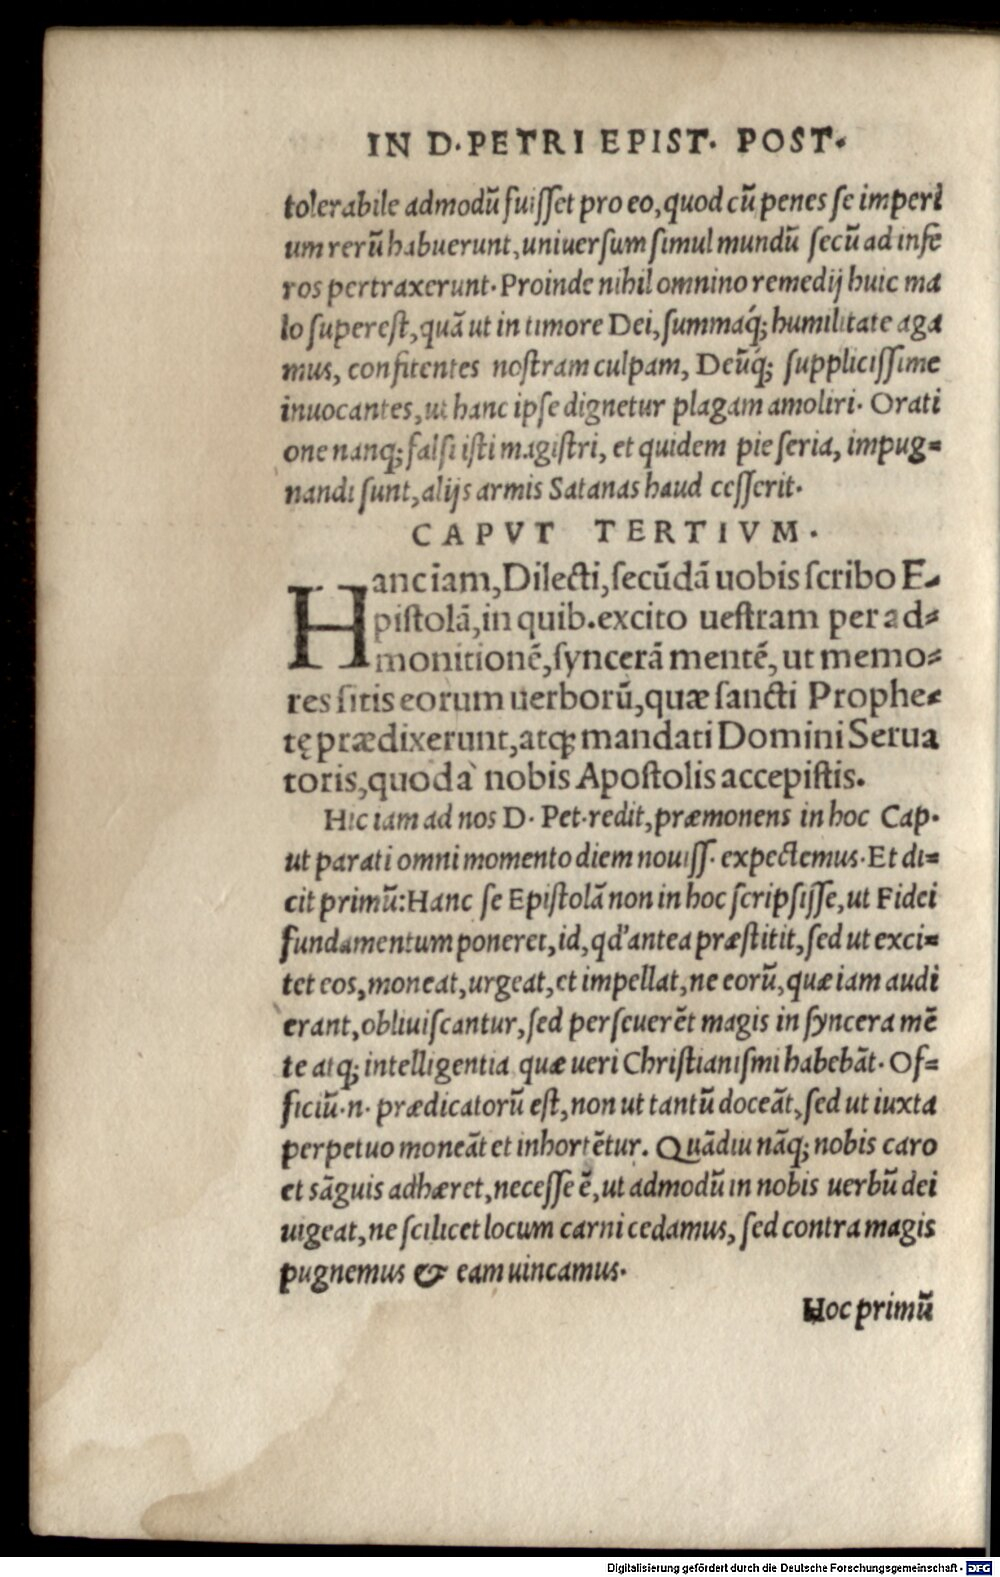 IN D. PETRI EPIST. POST.
tolerabile admodū fuiſſet pro eo, quod cū penes ſe imperi
um rerū habuerunt, uniuerſum ſimul mundū ſecū ad infe
ros pertraxerunt. Proinde nihil omnino remedij huic ma
lo ſupereſt, quā ut in timore Dei, ſummaq́; humilitate aga
mus, confitentes noſtram culpam, Deūq́; ſuppliciſſime
inuocantes, ut hanc ipſe dignetur plagam amoliri. Orati
one nanq; falſi iſti magiſtri, et quidem pie ſeria, impug=
nandi ſunt, alijs armis Satanas haud ceſſerit.
CAPVT TERTIVM.
Hanc iam, Dilecti, ſecūdā uobis ſcribo E-
piſtolā, in quib. excito ueſtram per ad=
monitionē, ſyncerā mentē, ut memo=
res ſitis eorum uerborū, quæ ſancti Prophe-
tę prædixerunt, atq; mandati Domini Serua
toris, quod à nobis Apoſtolis accepiſtis.
Hic iam ad nos D. Pet. redit, præmonens in hoc Cap.
ut parati omni momento diem nouiſſ. expectemus. Et di=
cit primū: Hanc ſe Epiſtolā non in hoc ſcripſiſſe, ut Fidei
fundamentum poneret, id, qd' antea præſtitit, ſed ut exci=
tet eos, moneat, urgeat, et impellat, ne eorū, quæ iam audi
erant, obliuiſcantur, ſed perſeuerēt magis in ſyncera mē
te atq; intelligentia quæ ueri Chriſtianiſmi habebāt. Of=
ficiū.n. prædicatorū eſt, non ut tantū doceāt, ſed ut iuxta
perpetuo moneāt et inhortētur. Quādiu nāq; nobis caro
et sāguis adhæret, neceſſe ē, ut admodū in nobis uerbū dei
uigeat, ne ſcilicet locum carni cedamus, ſed contra magis
pugnemus & eam uincamus.
Hoc primū
Digitalisierung gefördert durch die Deutsche Forschungsgemeinschaft - DFG